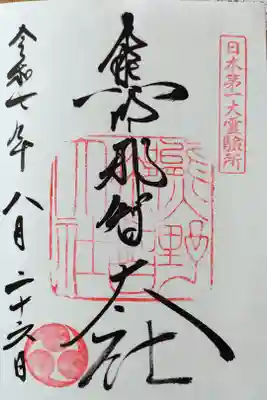 日本第一大霊験所
熊野那智大社
令和七年八月二十六日